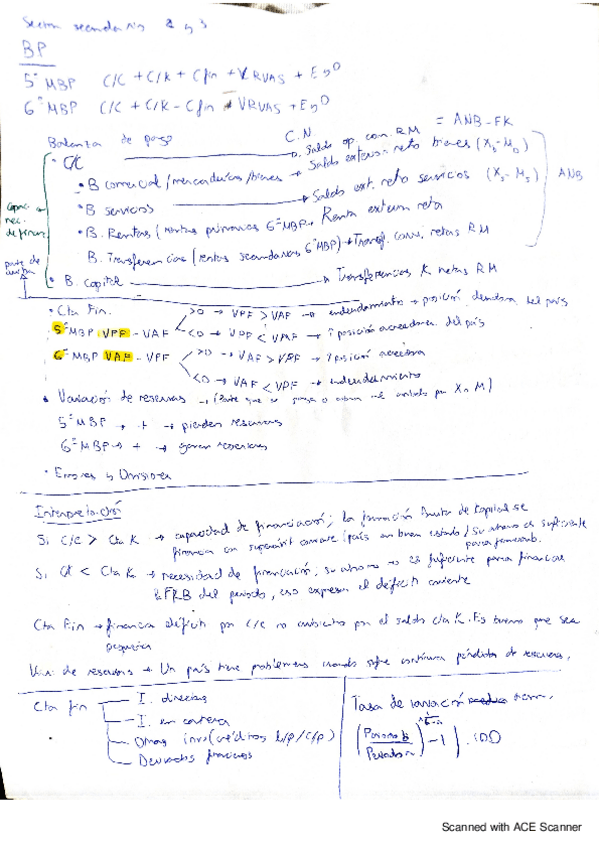 Sector secundario 2 y 3
BP
5º MBP C/C + C/K + Cfin + VRVAS + EyO
6º MBP C/C + C/K - Cfin + VRVAS + EyO
Balanza de pagos C.N. = ANB-FK
• C/C Saldo op. corr. RM
• B comercial/mercaderías/bienes → Saldo externo neto bienes (X - M)
• B servicios → Saldo ext. neto servicios (Xs - Ms) ANB
• B. Rentas (rentas primarias 6º MBP → Renta externa neta
B. Transferencias (rentas secundarias 6º MBP) → Transf. corr. netas RM
• B. Capital → Transferencias K netas RM
• Cta Fin. >0 → VPF > VAF → endeudamiento → posición deudora del país
5º MBP VPF - VAF <0 → VPF < VAF → posición acreedora del país
6º MBP VAF - VPF >0 → VAF > VPF → posición acreedora
<0 → VAF < VPF → endeudamiento
• Variación de reservas
5º MBP → + → pierden reservas
6º MBP → + → ganan reservas
• Errores y Omisiones
Interpretación
Si C/C > Cta K → capacidad de financiación; la formación bruta de capital se
financia con superávit corriente (país en buen estado/su ahorro es suficiente
Si CK < Cta K → necesidad de financiación; su ahorro no es suficiente para financiar
FBK del periodo, eso expresa el déficit corriente
Cta Fin → financia déficit por C/C no cubierto por el saldo cta K. Es bueno que sea
pequeña
Var. de reservas → Un país tiene problemas cuando sufre continuas pérdidas de reservas.
Cta fin I. directas Tasa de variación acum.
I. en cartera
Otras inv. (créditos l/p / c/p) -1).100
Derivados financieros
Scanned with ACE Scanner